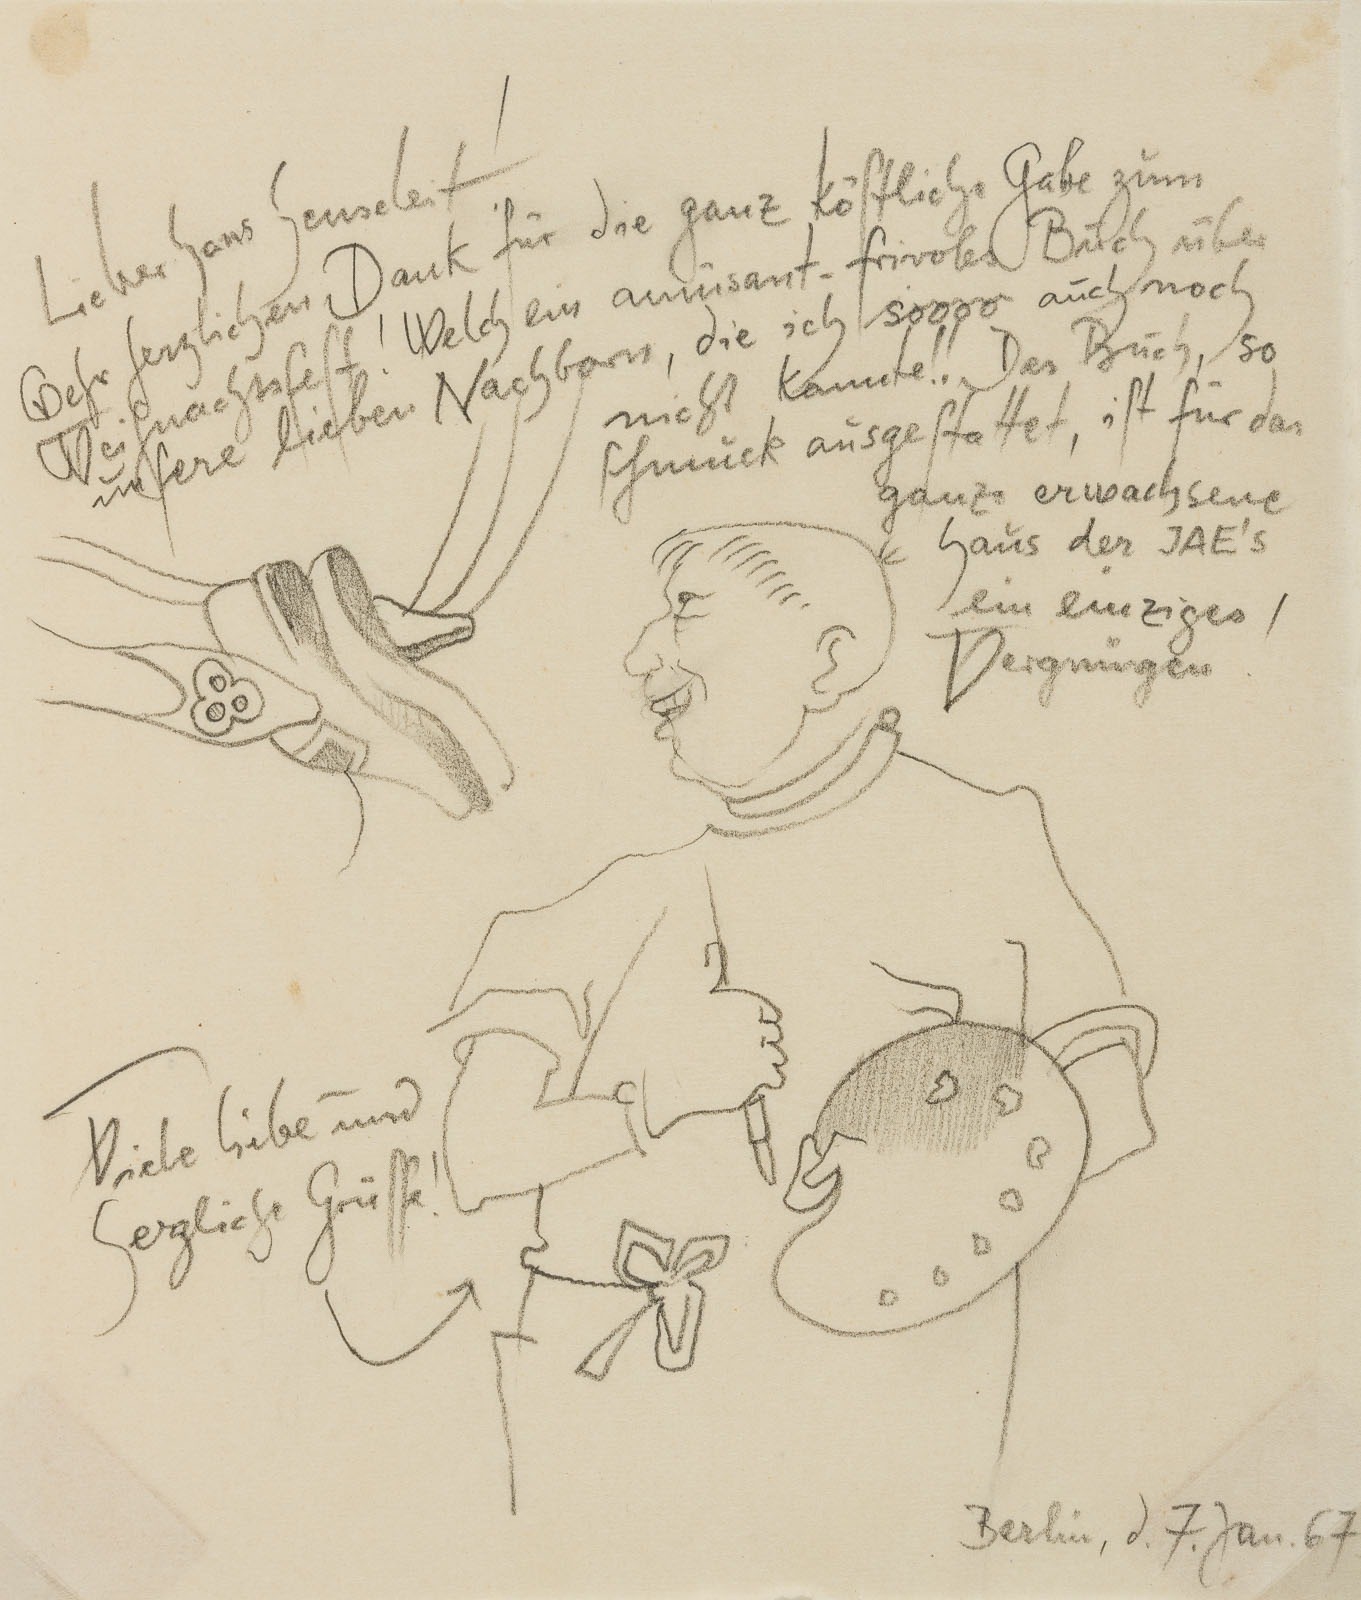 Lieber Hans Henseleit!
Sehr herzlichen Dank für die ganz köstliche Gabe zum
Weihnachtsfest! Welch ein amüsant-frivoles Buch über
unsere lieben Nachbarn, die ich soooo auch noch
nicht kannte!! Das Buch, so
schmuck ausgestattet, ist für das
ganze erwachsene
Haus der JAE's
ein einziges
Vergnügen!
Viele liebe und
herzliche Grüsse!
Berlin, d. 7. Jan. 67